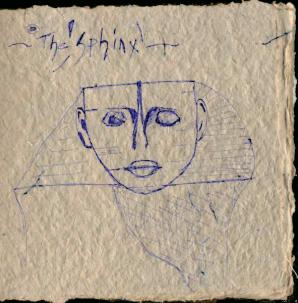 ~ "The Sphinx" ~